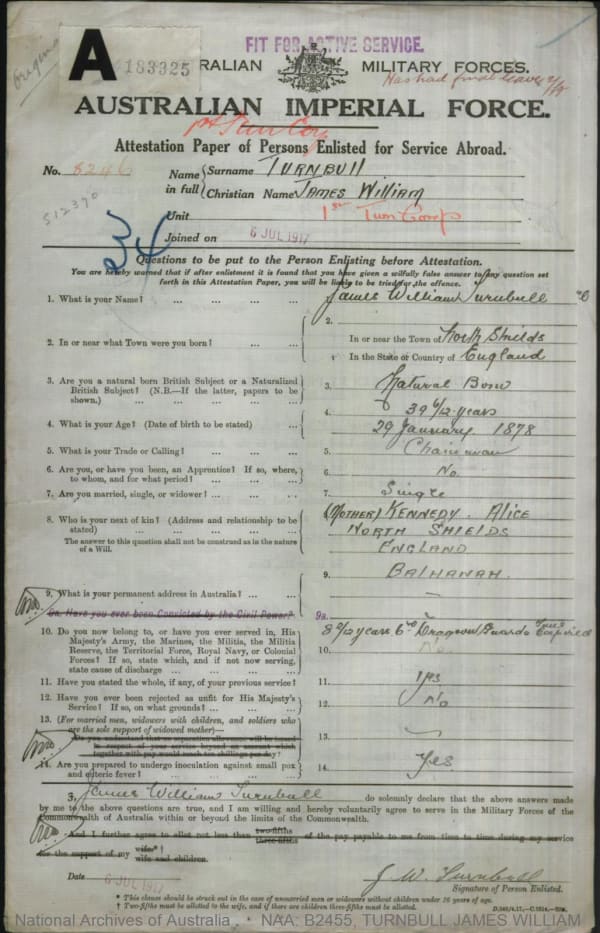 Original
A
183325
FIT FOR ACTIVE SERVICE.
RALIAN MILITARY FORCES.
Has had final leave
AUSTRALIAN IMPERIAL FORCE.
Attestation Paper of Persons Enlisted for Service Abroad.
No. 8246
Name in full
Surname TURNBULL
Christian Name JAMES WILLIAM
512390
34
Unit 1st Tun Comp
Joined on 6 JUL 1917
Questions to be put to the Person Enlisting before Attestation.
You are hereby warned that if after enlistment it is found that you have given a wilfully false answer to any question set
forth in this Attestation Paper, you will be liable to be tried for the offence.
1. What is your Name? ... ... ... ...
James William Turnbull
2. In or near what Town were you born? ... ...
2.
In or near the Town of North Shields
In the State or Country of England
3. Are you a natural born British Subject or a Naturalized
British Subject? (N.B.—If the latter, papers to be
shown.) ... ... ... ... ...
3. Natural Born
4. What is your Age? (Date of birth to be stated) ...
4. 39 6/12 years
29 January 1878
5. What is your Trade or Calling? ... ... ...
5. Chainman
6. Are you, or have you been, an Apprentice? If so, where,
to whom, and for what period? ... ... ...
6. No
7. Are you married, single, or widower? ... ... ...
7. Single
8. Who is your next of kin? (Address and relationship to be
stated) ... ... ... ... ...
The answer to this question shall not be construed as in the nature
of a Will.
8. (MOTHER) KENNEDY. ALICE
NORTH SHIELDS
ENGLAND
9. What is your permanent address in Australia? ... ...
9. BALHANAH.
9a. Have you ever been Convicted by the Civil Power?
9a. —
10. Do you now belong to, or have you ever served in, His
Majesty's Army, the Marines, the Militia, the Militia
Reserve, the Territorial Force, Royal Navy, or Colonial
Forces? If so, state which, and if not now serving,
state cause of discharge ... ... ... ...
8 2/12 years 6th Dragoon Guards Time Expired
10. No
11. Have you stated the whole, if any, of your previous service?
11. Yes
12. Have you ever been rejected as unfit for His Majesty's
Service? If so, on what grounds? ... ... ...
12. No
13. (For married men, widowers with children, and soldiers who
are the sole support of widowed mother)—
Do you understand that no separation allowance will be issued
in respect of your service beyond an amount which
together with pay would reach ten shillings per day?
13. —
14. Are you prepared to undergo inoculation against small pox
and enteric fever? ... ... ... ... ...
14. Yes
I, James William Turnbull do solemnly declare that the above answers made
by me to the above questions are true, and I am willing and hereby voluntarily agree to serve in the Military Forces of the
Commonwealth of Australia within or beyond the limits of the Commonwealth.
And I further agree to allot not less than two-fifths three-fifths of the pay payable to me from time to time during my service
for the support of my wife* wife and children.
Date 6 JUL 1917
J. W. Turnbull
Signature of Person Enlisted.
* This clause should be struck out in the case of unmarried men or widowers without children under 16 years of age.
† Two-fifths must be allotted to the wife, and if there are children three-fifths must be allotted.
National Archives of Australia • NAA: B2455, TURNBULL JAMES WILLIAM